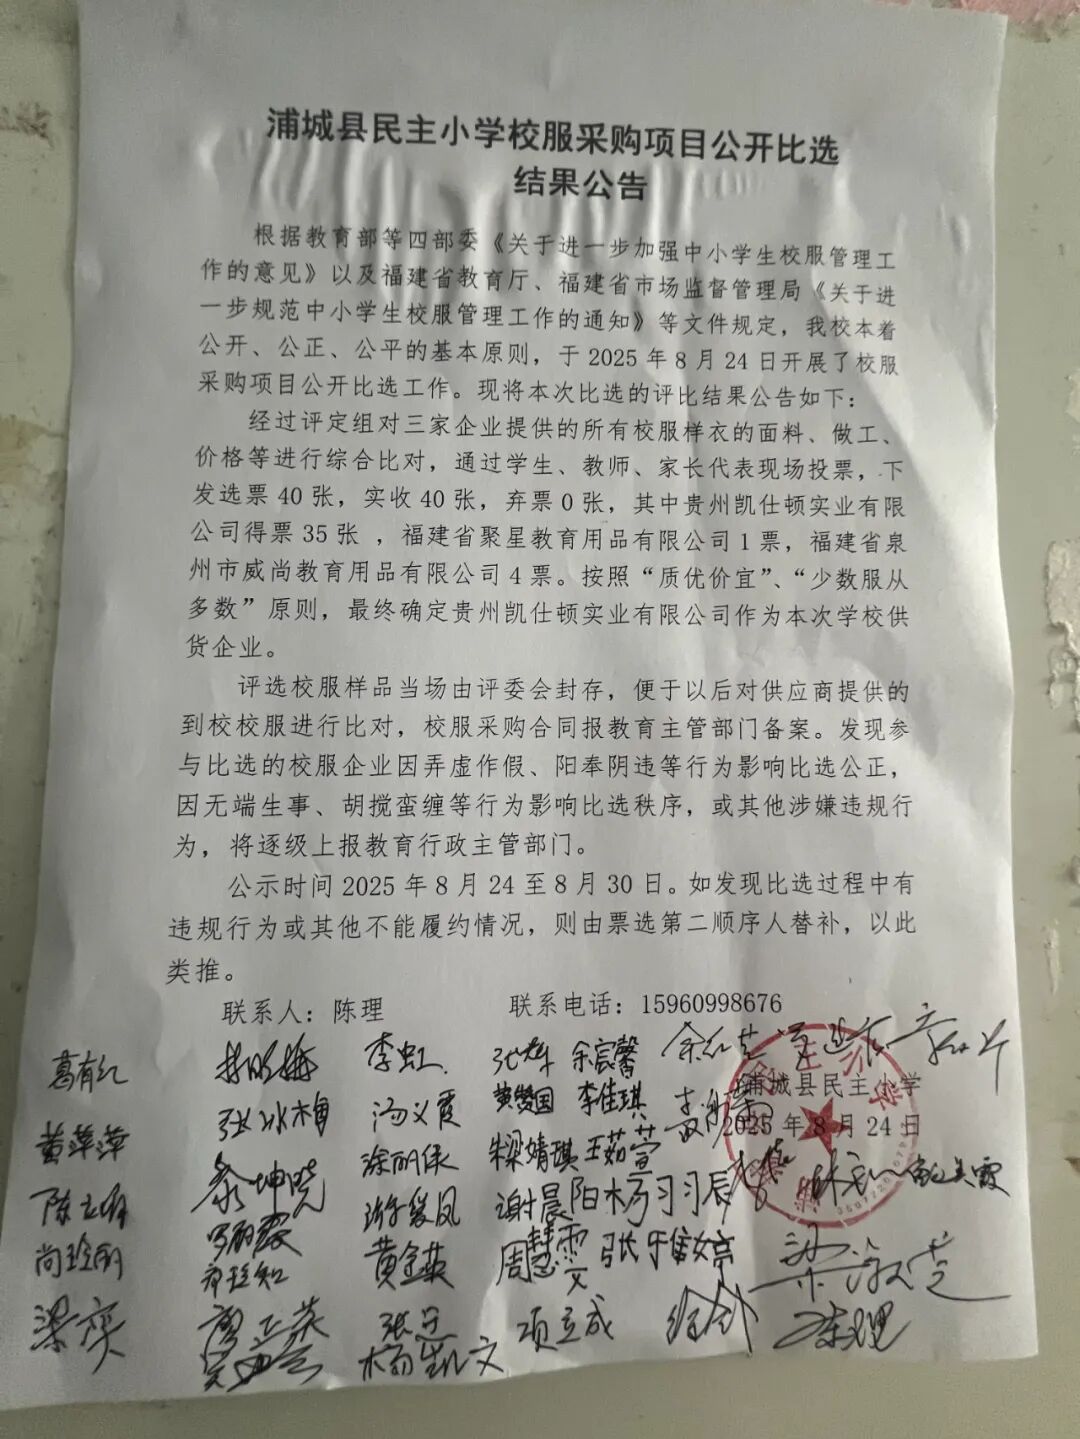 浦城县民主小学校服采购项目公开比选
结果公告
根据教育部等四部委《关于进一步加强中小学生校服管理工
作的意见》以及福建省教育厅、福建省市场监督管理局《关于进
一步规范中小学生校服管理工作的通知》等文件规定，我校本着
公开、公正、公平的基本原则，于 2025 年 8 月 24 日开展了校服
采购项目公开比选工作。现将本次比选的评比结果公告如下：
经过评定组对三家企业提供的所有校服样衣的面料、做工、
价格等进行综合比对，通过学生、教师、家长代表现场投票，下
发选票 40 张，实收 40 张，弃票 0 张，其中贵州凯仕顿实业有限
公司得票 35 张 ，福建省聚星教育用品有限公司 1 票，福建省泉
州市威尚教育用品有限公司 4 票。按照“质优价宜”、“少数服从
多数”原则，最终确定贵州凯仕顿实业有限公司作为本次学校供
货企业。
评选校服样品当场由评委会封存，便于以后对供应商提供的
到校校服进行比对，校服采购合同报教育主管部门备案。发现参
与比选的校服企业因弄虚作假、阳奉阴违等行为影响比选公正，
因无端生事、胡搅蛮缠等行为影响比选秩序，或其他涉嫌违规行
为，将逐级上报教育行政主管部门。
公示时间 2025 年 8 月 24 至 8 月 30 日。如发现比选过程中有
违规行为或其他不能履约情况，则由票选第二顺序人替补，以此
类推。
联系人：陈理 联系电话：15960998676
葛有红 李虹 余宸馨
浦城县民主小学
黄赞国 李佳琪
2025 年 8 月 24 日
黄萍萍 张冰梅 汤义霞
梁婧琪 王茹萱
谢晨阳
黄金英 周慧雯
梁奕 项立成 陈理
杨凯文